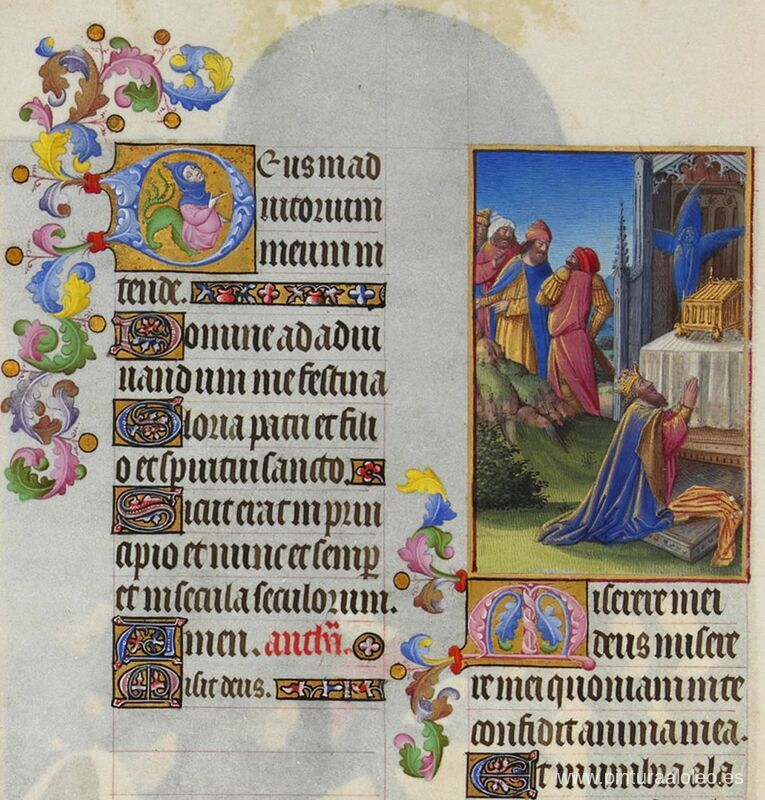 Deus in ad
iutorium
meum in
tende.
Domine ad adiu
uandum me festina
Gloria patri et fili
o et spiritui sancto.
Sicut erat in prin
cipio et nunc et semp
et in secula seculorum.
Amen. anth
Misit deus.
Miserere mei
deus misere
re mei quoniam in te
confidit anima mea.
Et in umbra ala
www.pinturaaloleo.es